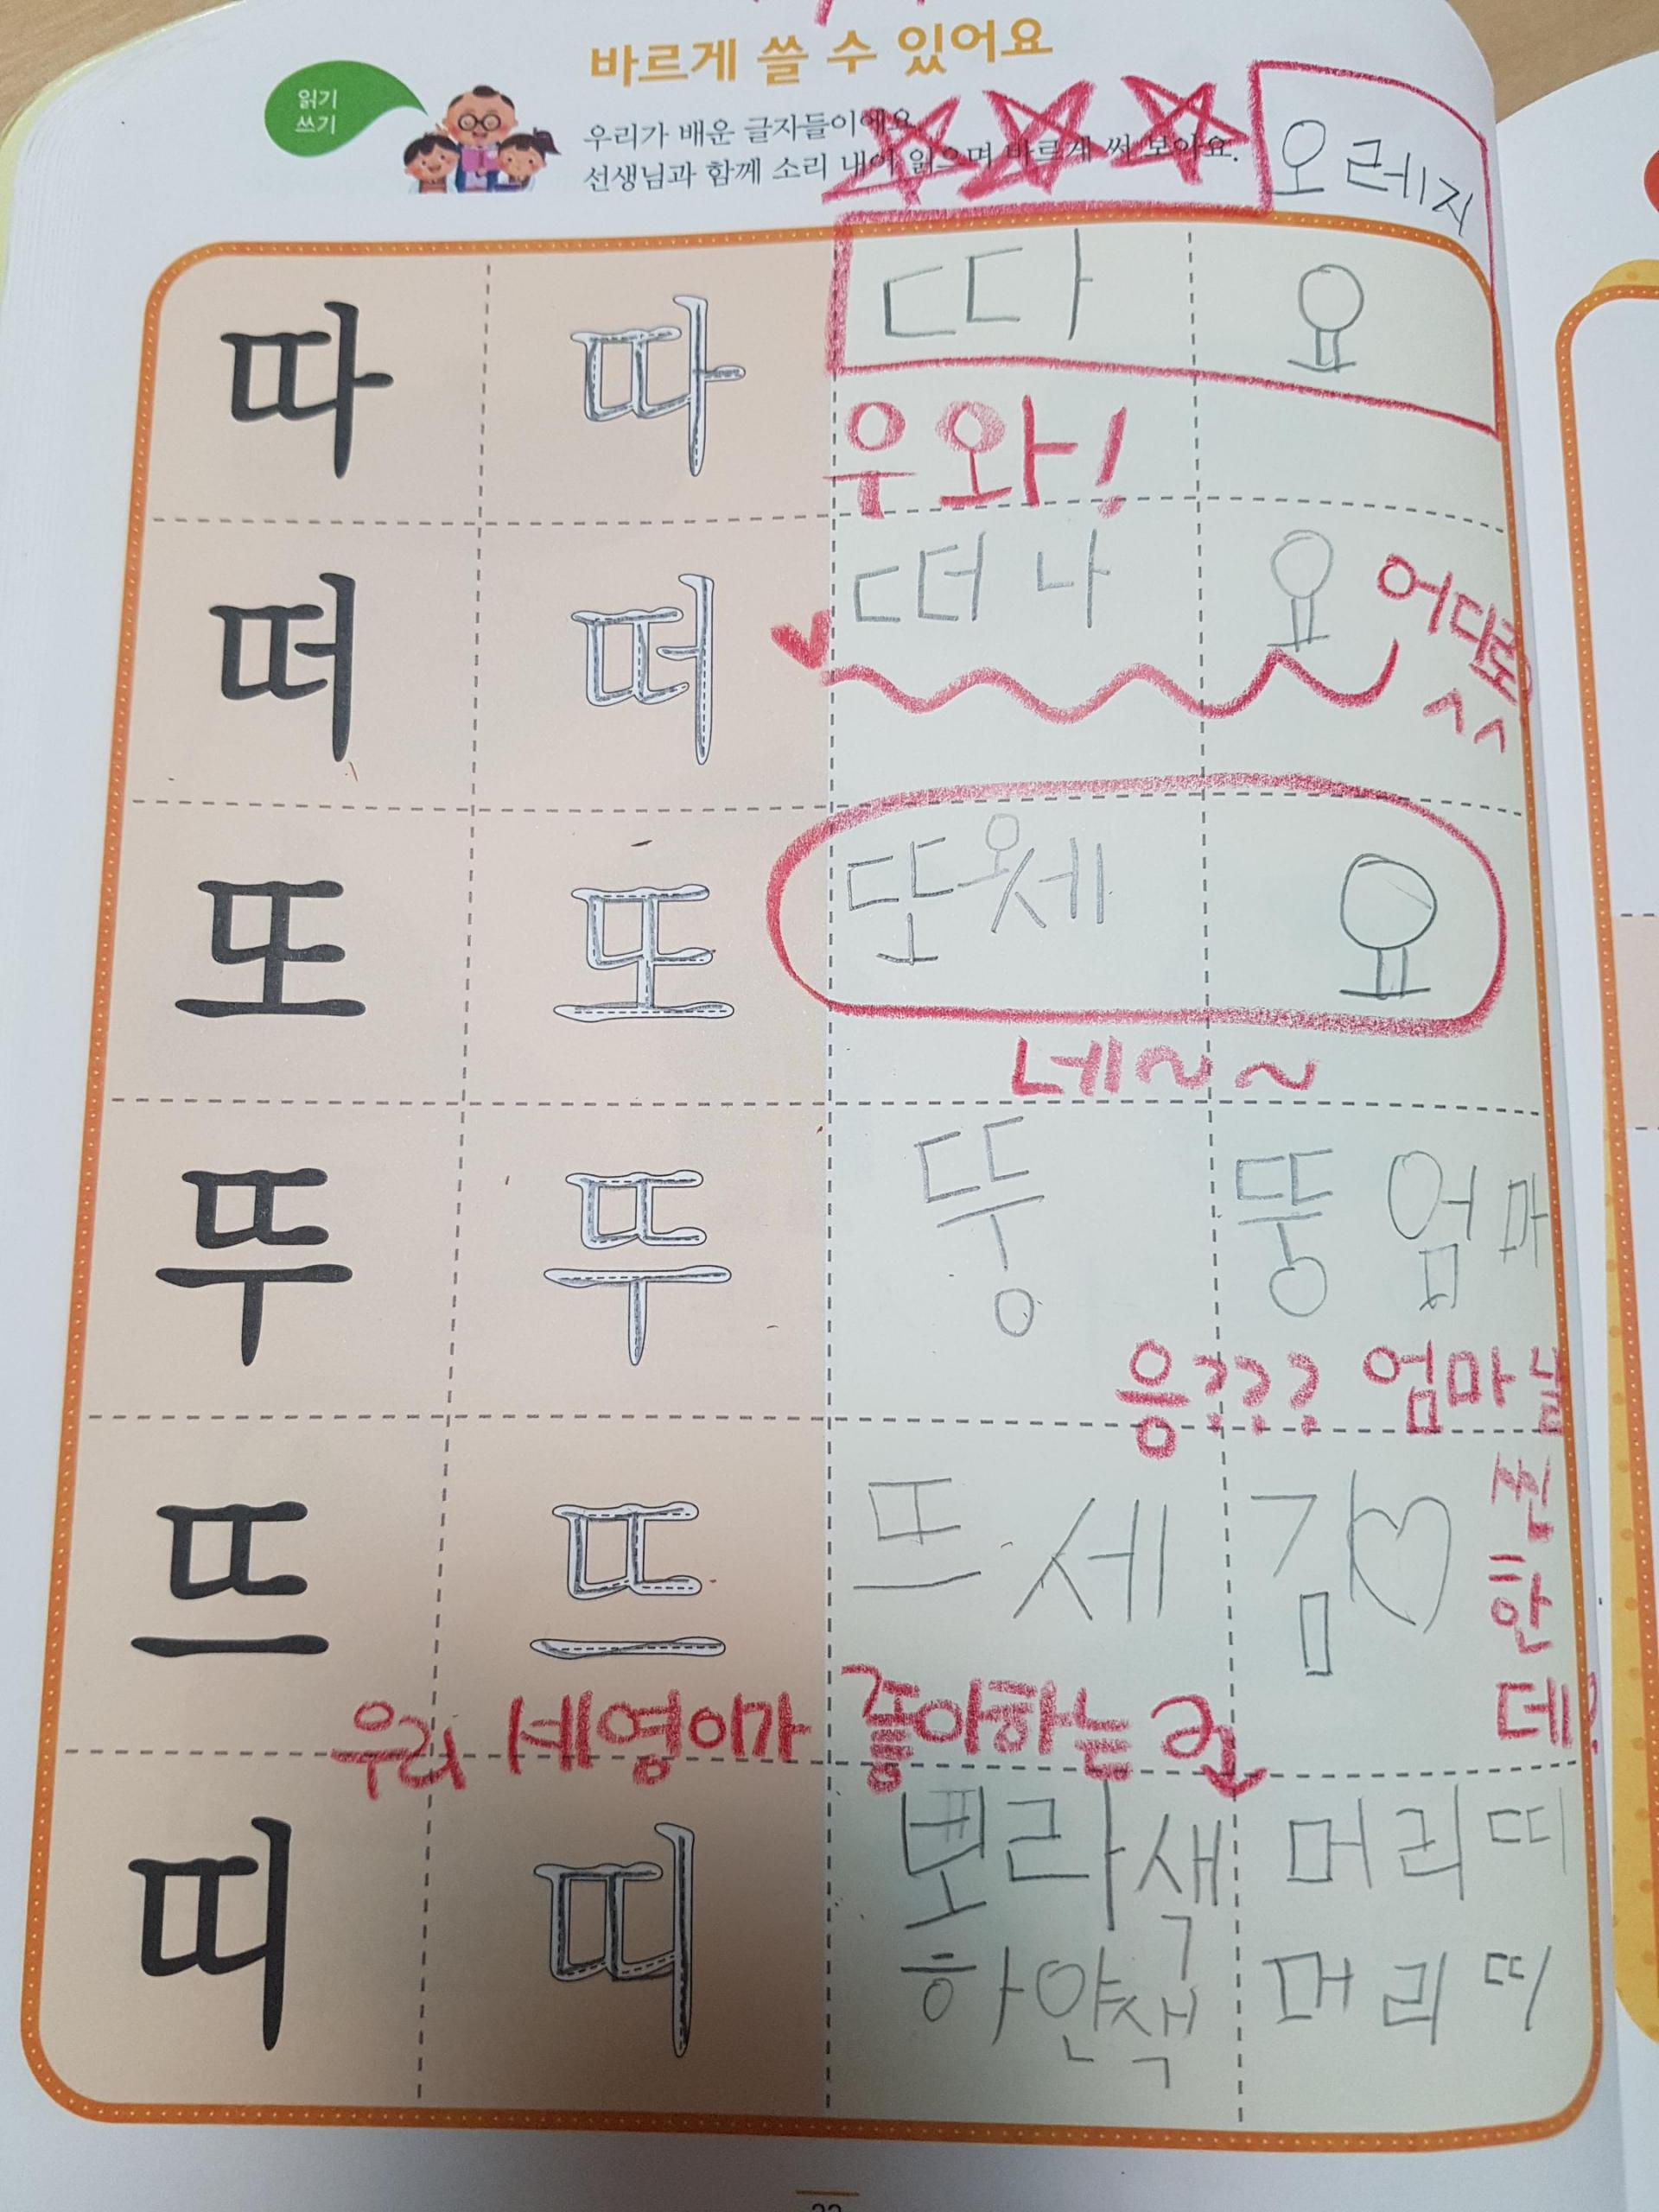 바르게 쓸 수 있어요
읽기
쓰기
우리가 배운 글자들이에요.
선생님과 함께 소리 내어 읽으며 바르게 써 보아요.
오레지
따 따 따 요
우와!
떠 떠 떠나 요
어디로
^^
또 또 또오세 요
네~~
뚜 뚜 뚱 뚱 엄마
응??? 엄마 날
씬
한
데?
뜨 뜨 뜨세 감♡
우리 세영이가 좋아하는 색
띠 띠 보라색 머리띠
하얀색 머리띠